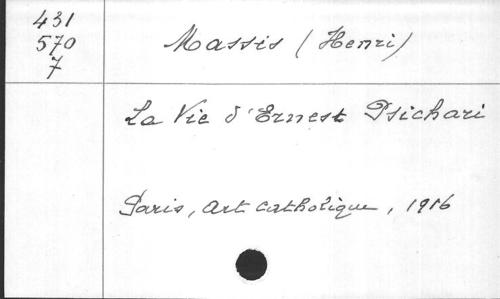 431
570
7
Massis (Henri)
La Vie d'Ernest Psichari
Paris, Art catholique, 1916